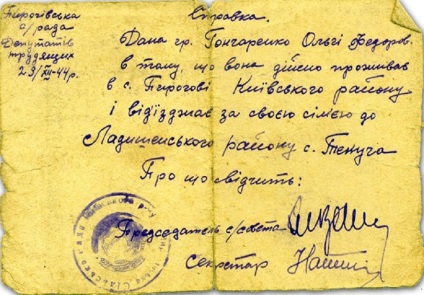 Пирогівська
с/рада
Депутатів
трудящих
29/XII-44р.
Справка.
Дана гр. Гончаренко Ользі Федоров.
в тому, що вона дійсно проживає
в с. Пирогові Київського району
і від'їзджає за своєю сім'єю до
Ладишенського району с. Тенуча
Про що свідчить:
Председатель с/совета
Секретар